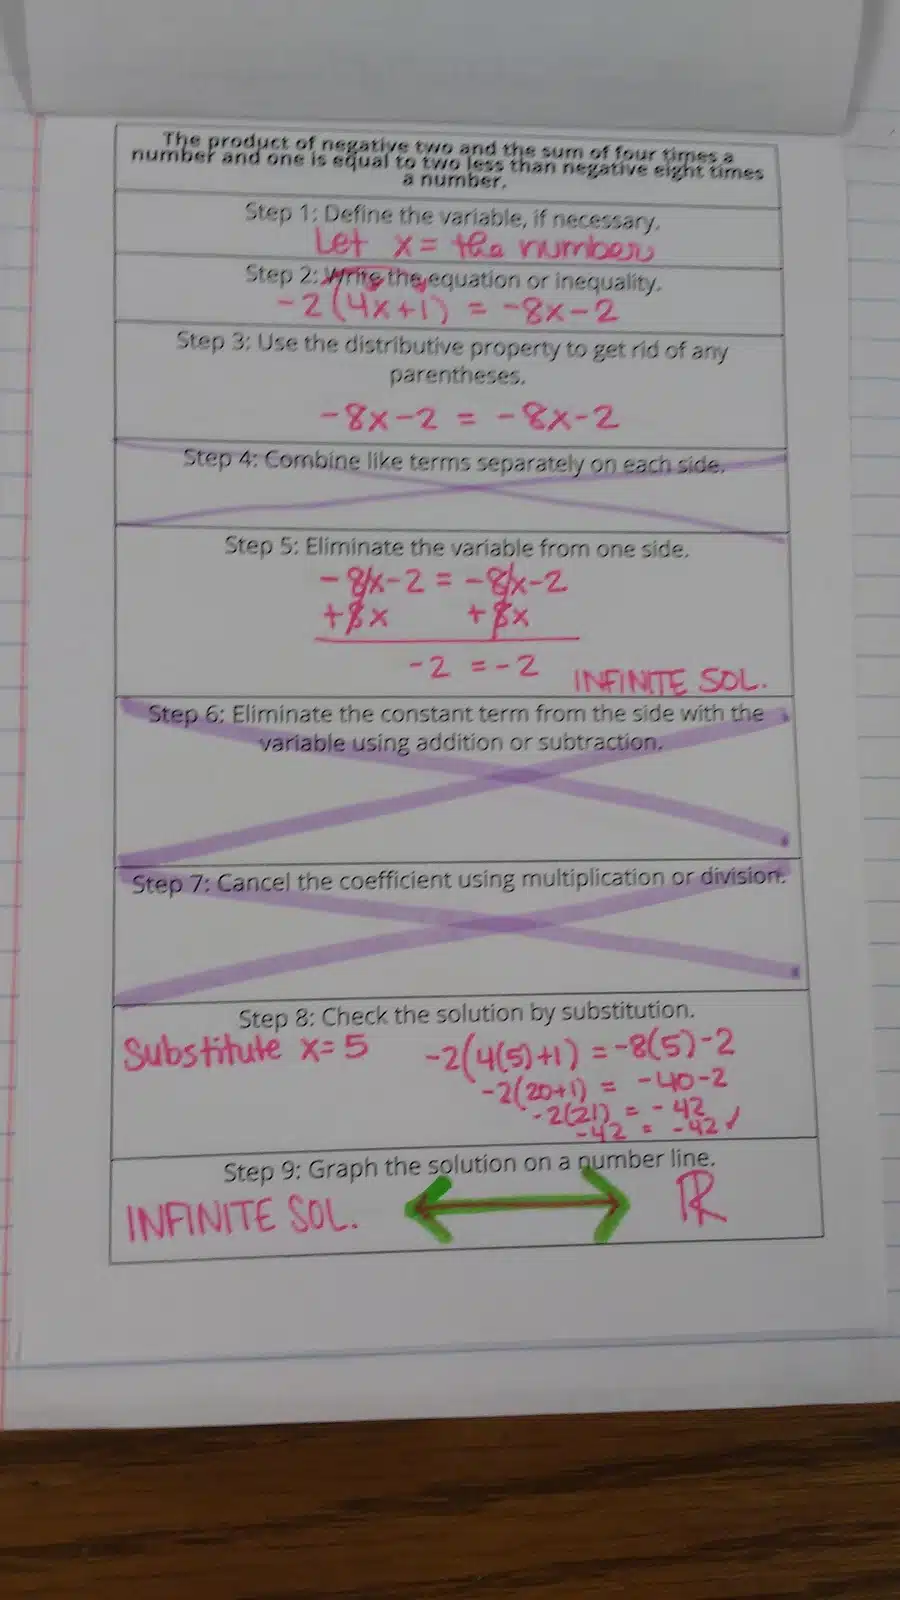 The product of negative two and the sum of four times a
number and one is equal to two less than negative eight times
a number.
Step 1: Define the variable, if necessary.
Let x = the number
Step 2: Write the equation or inequality.
-2(4x+1) = -8x-2
Step 3: Use the distributive property to get rid of any
parentheses.
-8x-2 = -8x-2
Step 4: Combine like terms separately on each side.
Step 5: Eliminate the variable from one side.
-8x-2 = -8x-2
+8x +8x
-2 = -2
INFINITE SOL.
Step 6: Eliminate the constant term from the side with the
variable using addition or subtraction.
Step 7: Cancel the coefficient using multiplication or division.
Step 8: Check the solution by substitution.
Substitute x=5 -2(4(5)+1) = -8(5)-2
-2(20+1) = -40-2
-2(21) = -42
-42 = -42 ✓
Step 9: Graph the solution on a number line.
INFINITE SOL. ℝ